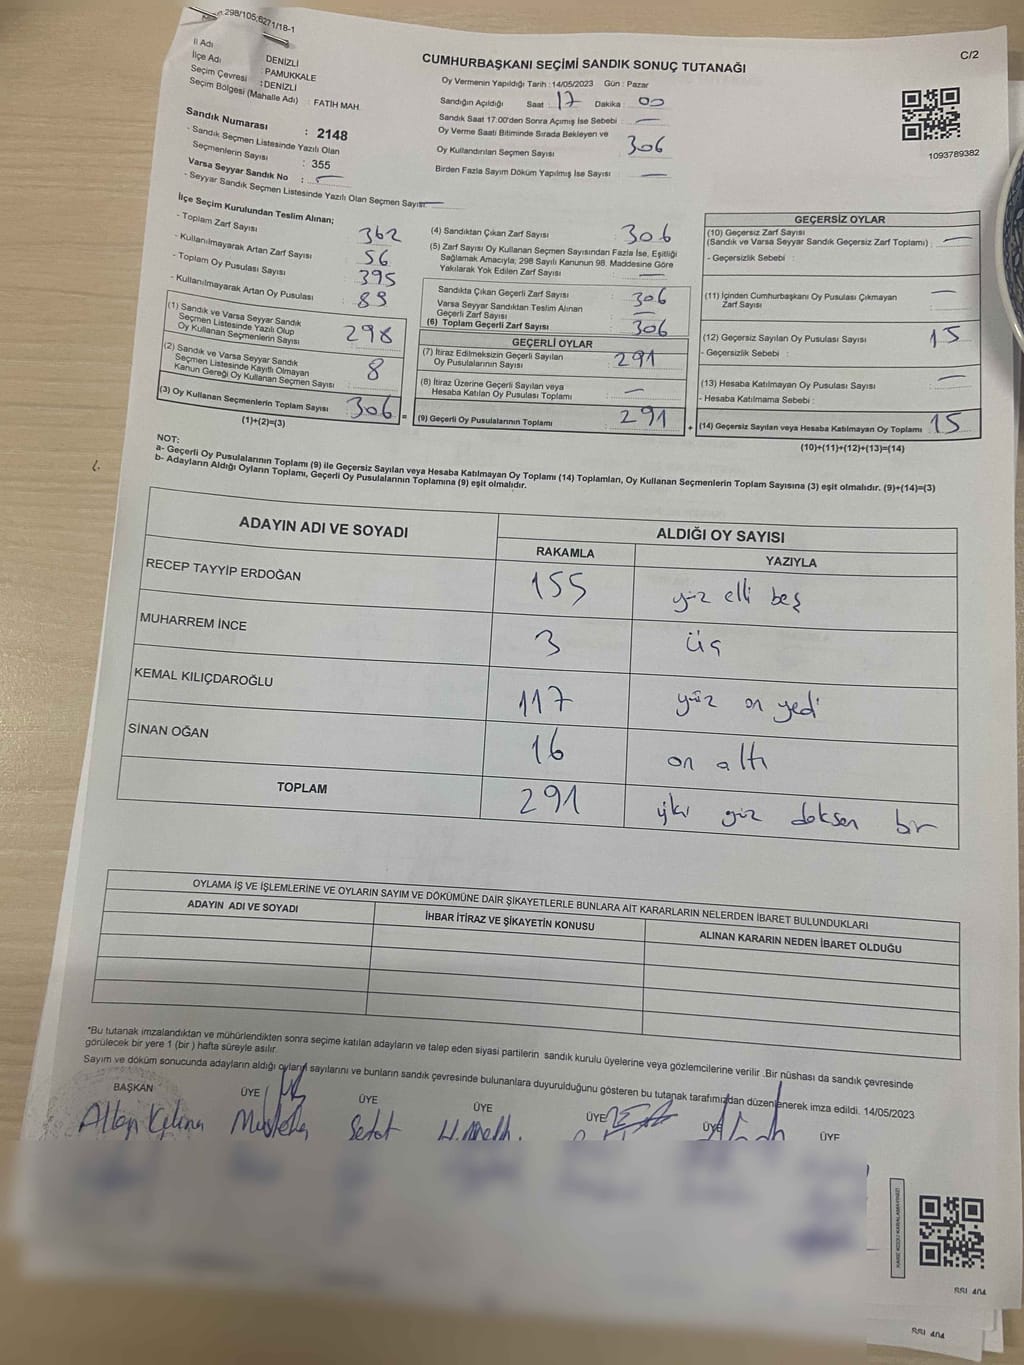 298/105,6271/18-1
C/2
İl Adı DENİZLİ
İlçe Adı : PAMUKKALE
Seçim Çevresi : DENİZLİ
Seçim Bölgesi (Mahalle Adı) : FATİH MAH.
CUMHURBAŞKANI SEÇİMİ SANDIK SONUÇ TUTANAĞI
Oy Vermenin Yapıldığı Tarih : 14/05/2023 Gün : Pazar
Sandığın Açıldığı Saat : 17 Dakika : 00
Sandık Saat 17:00'den Sonra Açımış İse Sebebi : —
Oy Verme Saati Bitiminde Sırada Bekleyen ve
Oy Kullandırılan Seçmen Sayısı 306
Birden Fazla Sayım Döküm Yapılmış İse Sayısı —
1093789382
Sandık Numarası : 2148
- Sandık Seçmen Listesinde Yazılı Olan
Seçmenlerin Sayısı : 355
Varsa Seyyar Sandık No : —
- Seyyar Sandık Seçmen Listesinde Yazılı Olan Seçmen Sayısı: —
İlçe Seçim Kurulundan Teslim Alınan;
- Toplam Zarf Sayısı 362
- Kullanılmayarak Artan Zarf Sayısı 56
- Toplam Oy Pusulası Sayısı 395
- Kullanılmayarak Artan Oy Pusulası 89
(1) Sandık ve Varsa Seyyar Sandık
Seçmen Listesinde Yazılı Olup
Oy Kullanan Seçmenlerin Sayısı 298
(2) Sandık ve Varsa Seyyar Sandık
Seçmen Listesinde Kayıtlı Olmayan
Kanun Gereği Oy Kullanan Seçmen Sayısı 8
(3) Oy Kullanan Seçmenlerin Toplam Sayısı 306 =
(1)+(2)=(3)
(4) Sandıktan Çıkan Zarf Sayısı 306
(5) Zarf Sayısı Oy Kullanan Seçmen Sayısından Fazla İse, Eşitliği
Sağlamak Amacıyla; 298 Sayılı Kanunun 98. Maddesine Göre
Yakılarak Yok Edilen Zarf Sayısı —
Sandıkta Çıkan Geçerli Zarf Sayısı : 306
Varsa Seyyar Sandıktan Teslim Alınan
Geçerli Zarf Sayısı : —
(6) Toplam Geçerli Zarf Sayısı : 306
GEÇERLİ OYLAR
(7) İtiraz Edilmeksizin Geçerli Sayılan
Oy Pusulalarının Sayısı 291
(8) İtiraz Üzerine Geçerli Sayılan veya
Hesaba Katılan Oy Pusulası Toplamı —
(9) Geçerli Oy Pusulalarının Toplamı 291 +
GEÇERSİZ OYLAR
(10) Geçersiz Zarf Sayısı
(Sandık ve Varsa Seyyar Sandık Geçersiz Zarf Toplamı) : —
- Geçersizlik Sebebi :
(11) İçinden Cumhurbaşkanı Oy Pusulası Çıkmayan
Zarf Sayısı —
(12) Geçersiz Sayılan Oy Pusulası Sayısı 15
- Geçersizlik Sebebi :
(13) Hesaba Katılmayan Oy Pusulası Sayısı —
- Hesaba Katılmama Sebebi :
(14) Geçersiz Sayılan veya Hesaba Katılmayan Oy Toplamı 15
(10)+(11)+(12)+(13)=(14)
NOT:
a- Geçerli Oy Pusulalarının Toplamı (9) ile Geçersiz Sayılan veya Hesaba Katılmayan Oy Toplamı (14) Toplamları, Oy Kullanan Seçmenlerin Toplam Sayısına (3) eşit olmalıdır. (9)+(14)=(3)
b- Adayların Aldığı Oyların Toplamı, Geçerli Oy Pusulalarının Toplamına (9) eşit olmalıdır.
ADAYIN ADI VE SOYADI ALDIĞI OY SAYISI
RAKAMLA YAZIYLA
RECEP TAYYİP ERDOĞAN 155 yüz elli beş
MUHARREM İNCE 3 üç
KEMAL KILIÇDAROĞLU 117 yüz on yedi
SİNAN OĞAN 16 on altı
TOPLAM 291 iki yüz doksan bir
OYLAMA İŞ VE İŞLEMLERİNE VE OYLARIN SAYIM VE DÖKÜMÜNE DAİR ŞİKAYETLERLE BUNLARA AİT KARARLARIN NELERDEN İBARET BULUNDUKLARI
ADAYIN ADI VE SOYADI İHBAR İTİRAZ VE ŞİKAYETİN KONUSU ALINAN KARARIN NEDEN İBARET OLDUĞU
*Bu tutanak imzalandıktan ve mühürlendikten sonra seçime katılan adayların ve talep eden siyasi partilerin sandık kurulu üyelerine veya gözlemcilerine verilir .Bir nüshası da sandık çevresinde
görülecek bir yere 1 (bir ) hafta süreyle asılır.
Sayım ve döküm sonucunda adayların aldığı oyların sayılarını ve bunların sandık çevresinde bulunanlara duyurulduğunu gösteren bu tutanak tarafımızdan düzenlenerek imza edildi. 14/05/2023
BAŞKAN ÜYE ÜYE ÜYE ÜYE ÜYE ÜYE
SSI 404
SSI 404